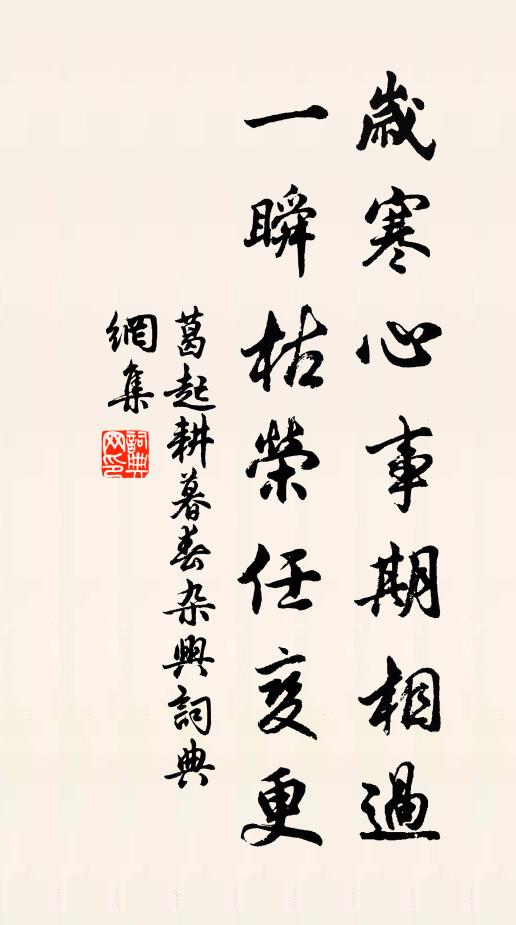 歲寒心事期相過
一瞬枯榮任变更
葛起耕暮春杂興詞典
網集
詞典
网印